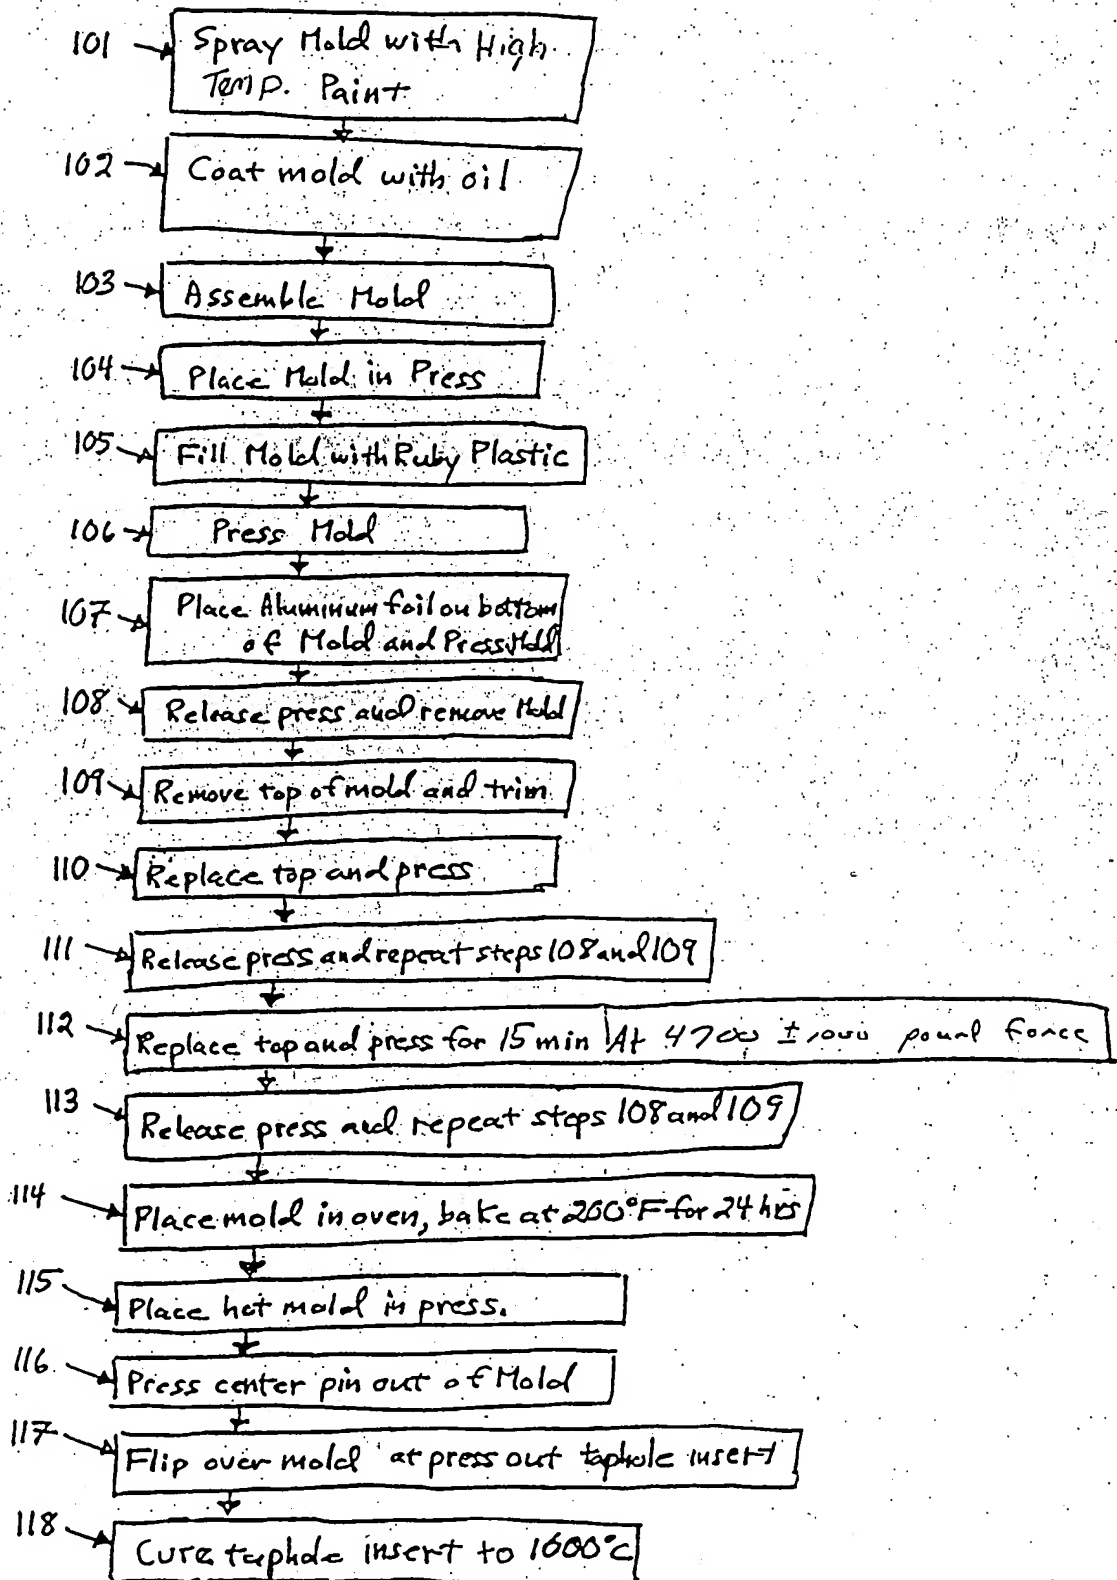 101
Spray Mold with High
Temp. Paint
102
Coat mold with oil
103
Assemble Mold
104
Place Mold in Press
105
Fill Mold with Ruby Plastic
106
Press Mold
107
Place Aluminum foil on bottom
of Mold and Press Mold
108
Release press and remove Mold
109
Remove top of mold and trim
110
Replace top and press
111
Release press and repeat steps 108 and 109
112
Replace top and press for 15 min At 4700 ±1000 pound force
113
Release press and repeat steps 108 and 109
114
Place mold in oven, bake at 200°F for 24 hrs
115
Place hot mold in press.
116
Press center pin out of Mold
117
Flip over mold at press out taphole insert
118
Cure taphole insert to 1600°C